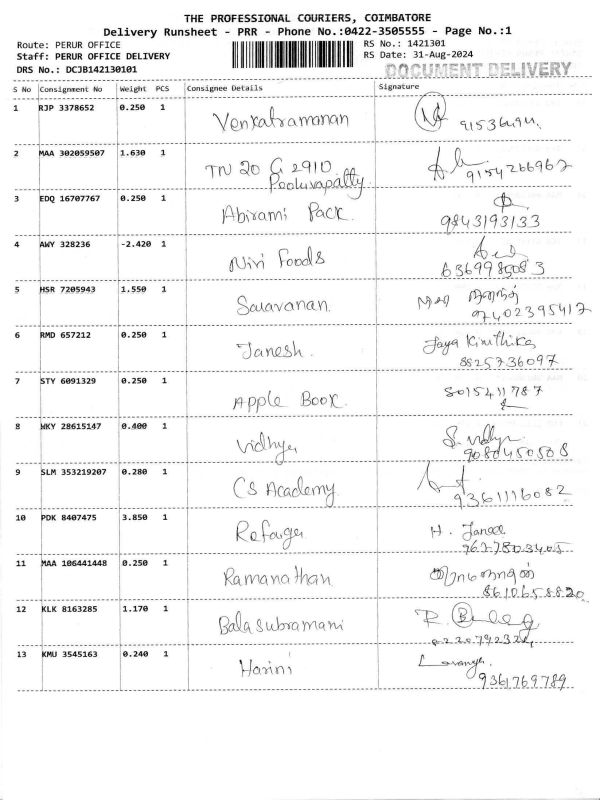 THE PROFESSIONAL COURIERS, COIMBATORE
Delivery Runsheet - PRR - Phone No.:0422-3505555 - Page No.:1
Route: PERUR OFFICE RS No.: 1421301
Staff: PERUR OFFICE DELIVERY RS Date: 31-Aug-2024
DRS No.: DCJB142130101 DOCUMENT DELIVERY
S No Consignment No Weight PCS Consignee Details Signature
1 RJP 3378652 0.250 1 Venkatramanan
2 MAA 302059507 1.630 1 TN 20 G 2910 9154266967
Pooluvapatty
3 EDQ 16707767 0.250 1 Abirami Pack 9843193133
4 AWY 328236 -2.420 1 Nivi Foods
5 HSR 7205943 1.550 1 Saravanan
7402395417
6 RMD 657212 0.250 1 Janesh. Jaya Kiruthika
8825736097
7 STY 6091329 0.250 1 Apple Book. 8015411787
8 WKY 28615147 0.400 1 Vidhya
9080450508
9 SLM 353219207 0.280 1 CS Academy 9361116082
10 PDK 8407475 3.850 1 H.
9677803405
11 MAA 106441448 0.250 1 Ramanathan
8610658820
12 KLK 8163285 1.170 1 Balasubramani R.
13 KMU 3545163 0.240 1 Harini
9361769789